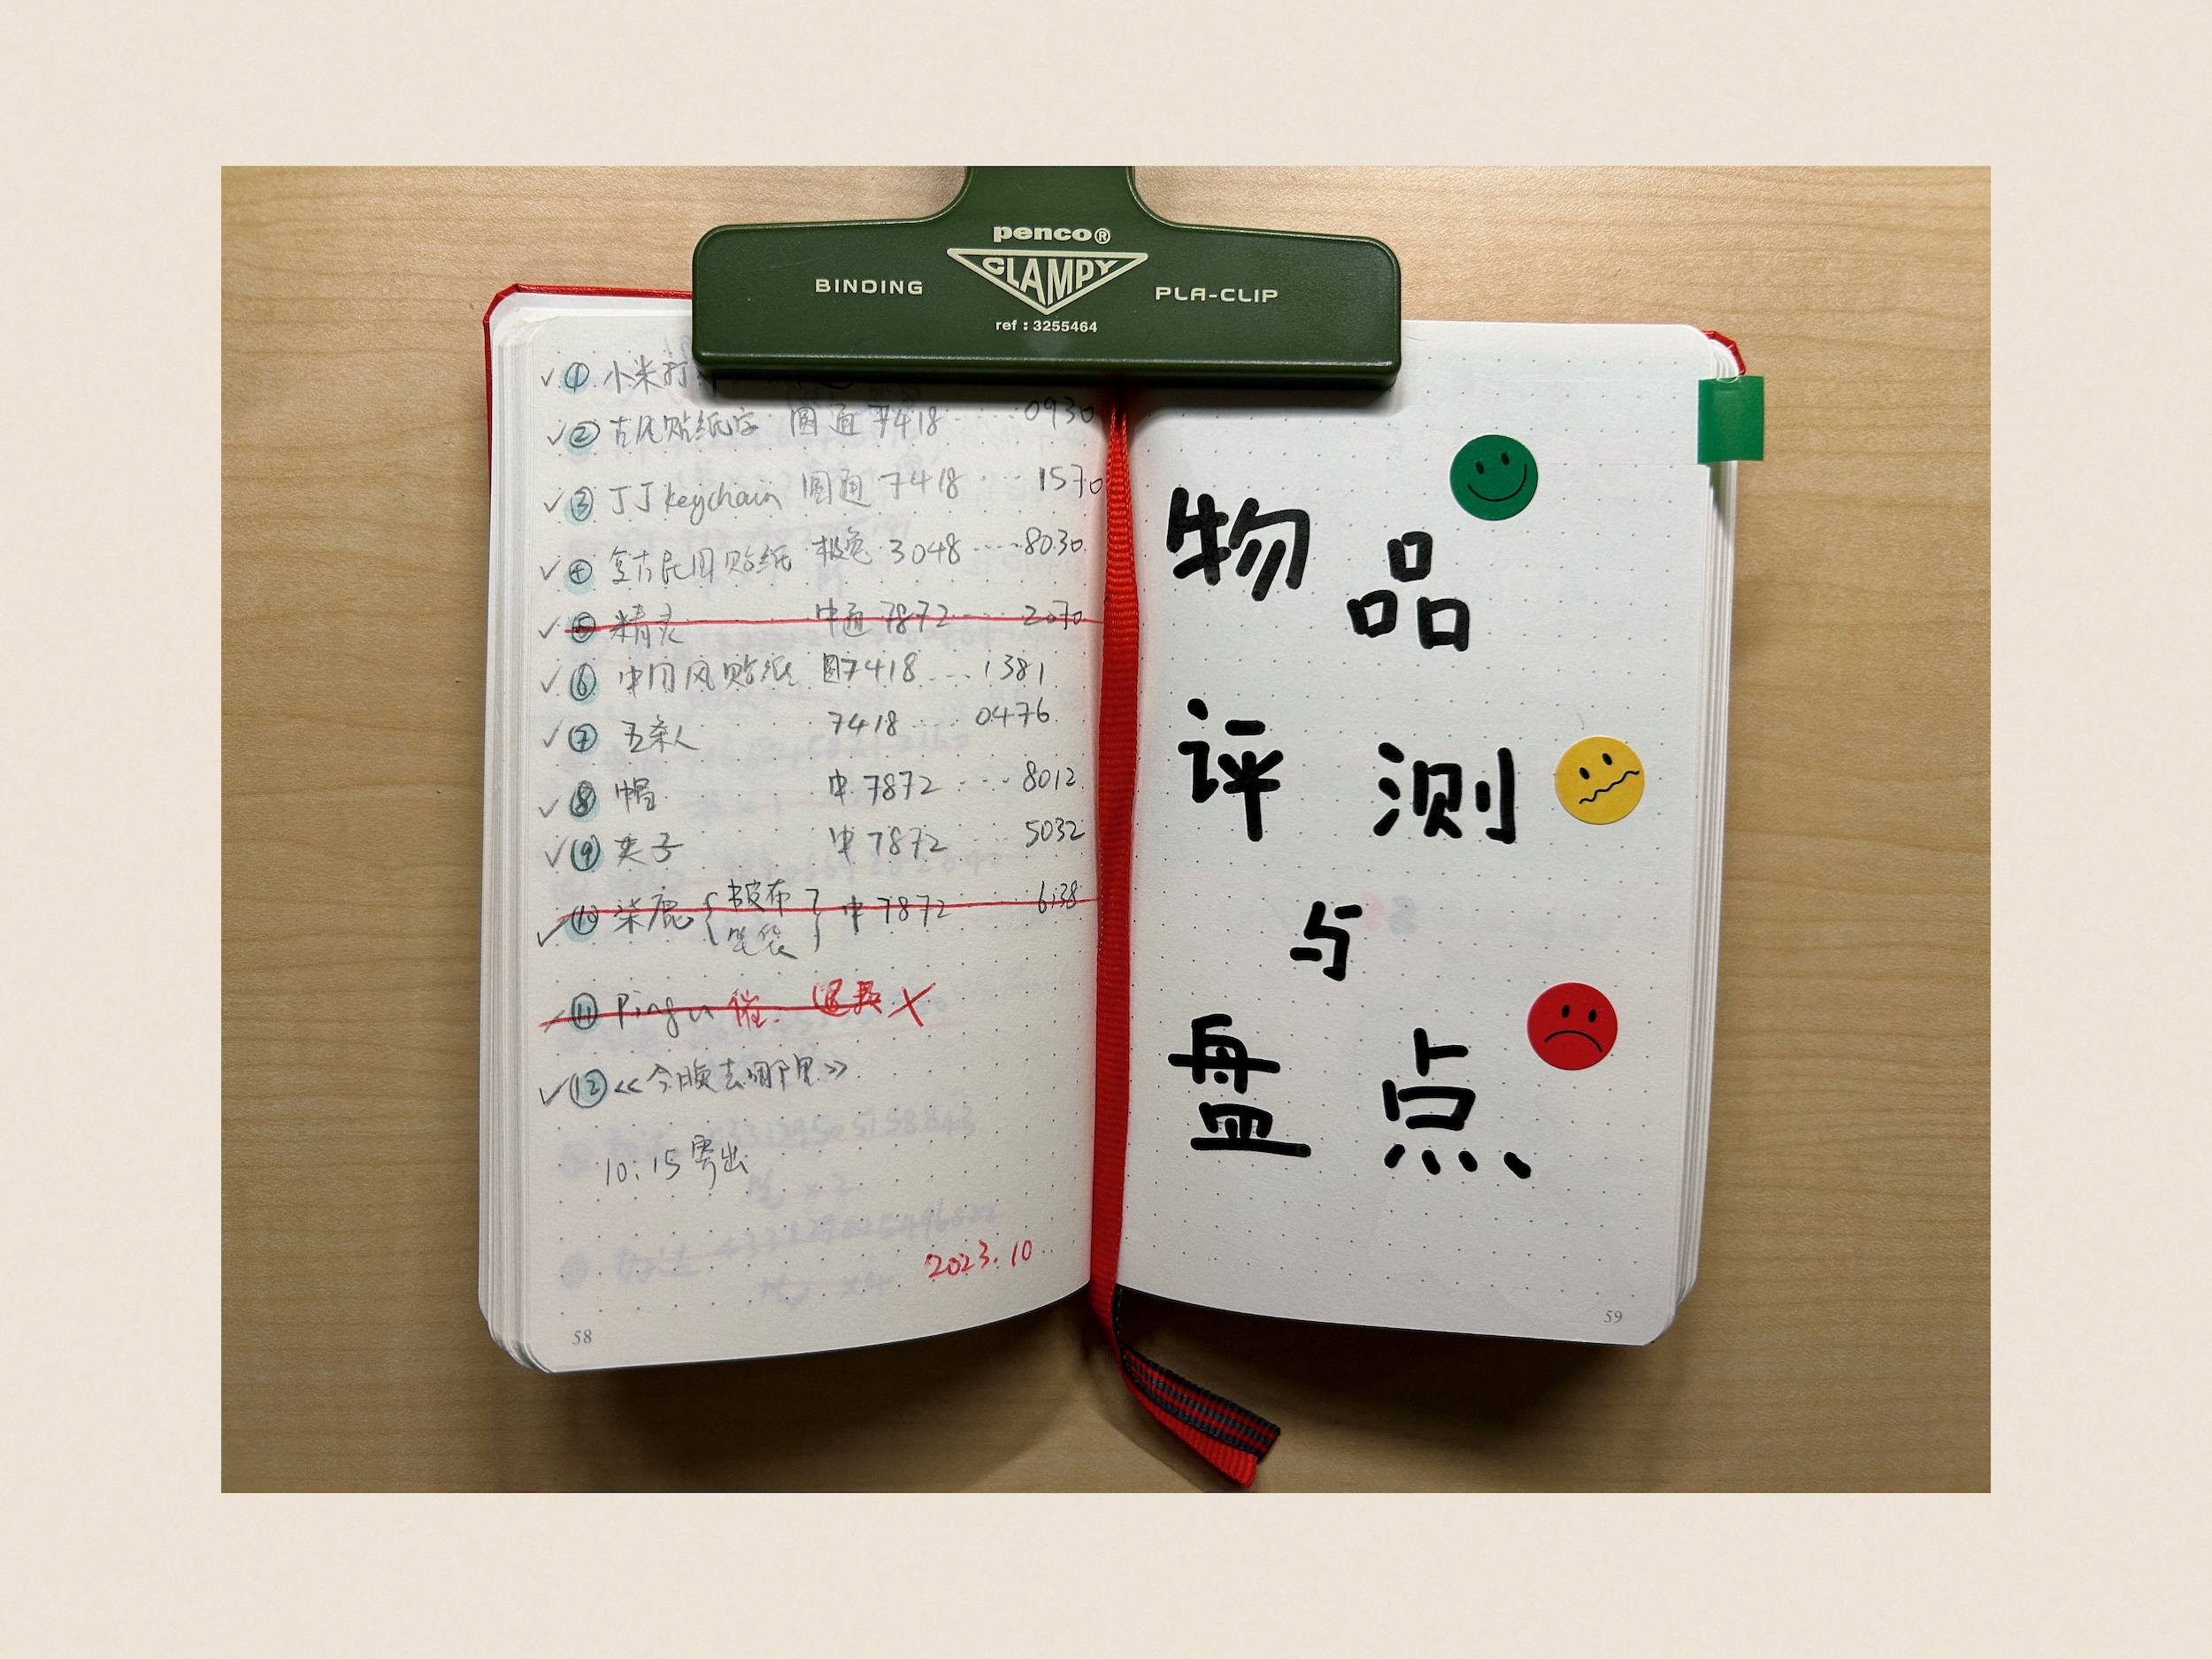 penco®
CLAMPY
BINDING PLA-CLIP
ref : 3255464
✓ ① 小米打
✓ ② 古风贴纸字 圆通 7418 ···· 0930
✓ ③ 丁丁 keychain 圆通 7418 ···· 1570
✓ ④ 复古民国贴纸 极兔 3048 ···· 8030
✓ ⑤ 精灵 中通 7872 ···· 2070
✓ ⑥ 中国风贴纸 圆 7418 ···· 1381
✓ ⑦ 五条人 7418 ···· 0476
✓ ⑧ 帽 中 7872 ···· 8012
✓ ⑨ 夹子 中 7872 5032
✓ ⑩ 柒鹿 { 布 笔袋 } 中 7872 6138
⑪ Pingu 催 退款 ×
✓ ⑫ 《今晚去哪里》
10.15 寄出
2023.10
58
物品
评测
与
盘点
59